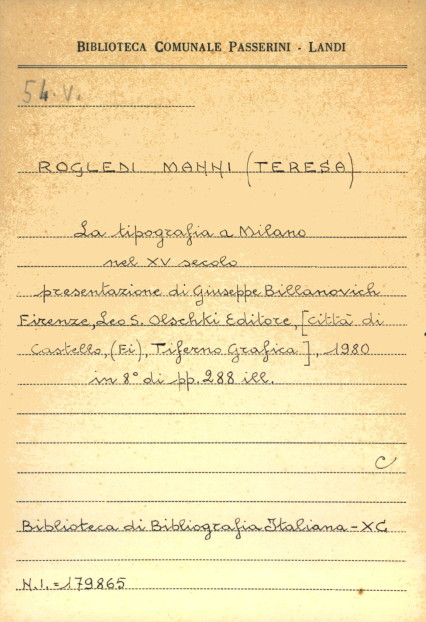 BIBLIOTECA COMUNALE PASSERINI - LANDI
54.V.
ROGLEDI MANNI (TERESA)
La tipografia a Milano
nel XV secolo
presentazione di Giuseppe Billanovich
Firenze, Leo S. Olschki Editore, [Città di
Castello, (Fi), Tiferno Grafica], 1980
in 8° di pp. 288 ill.
C
Biblioteca di Bibliografia Italiana - XC
N.I. = 179865